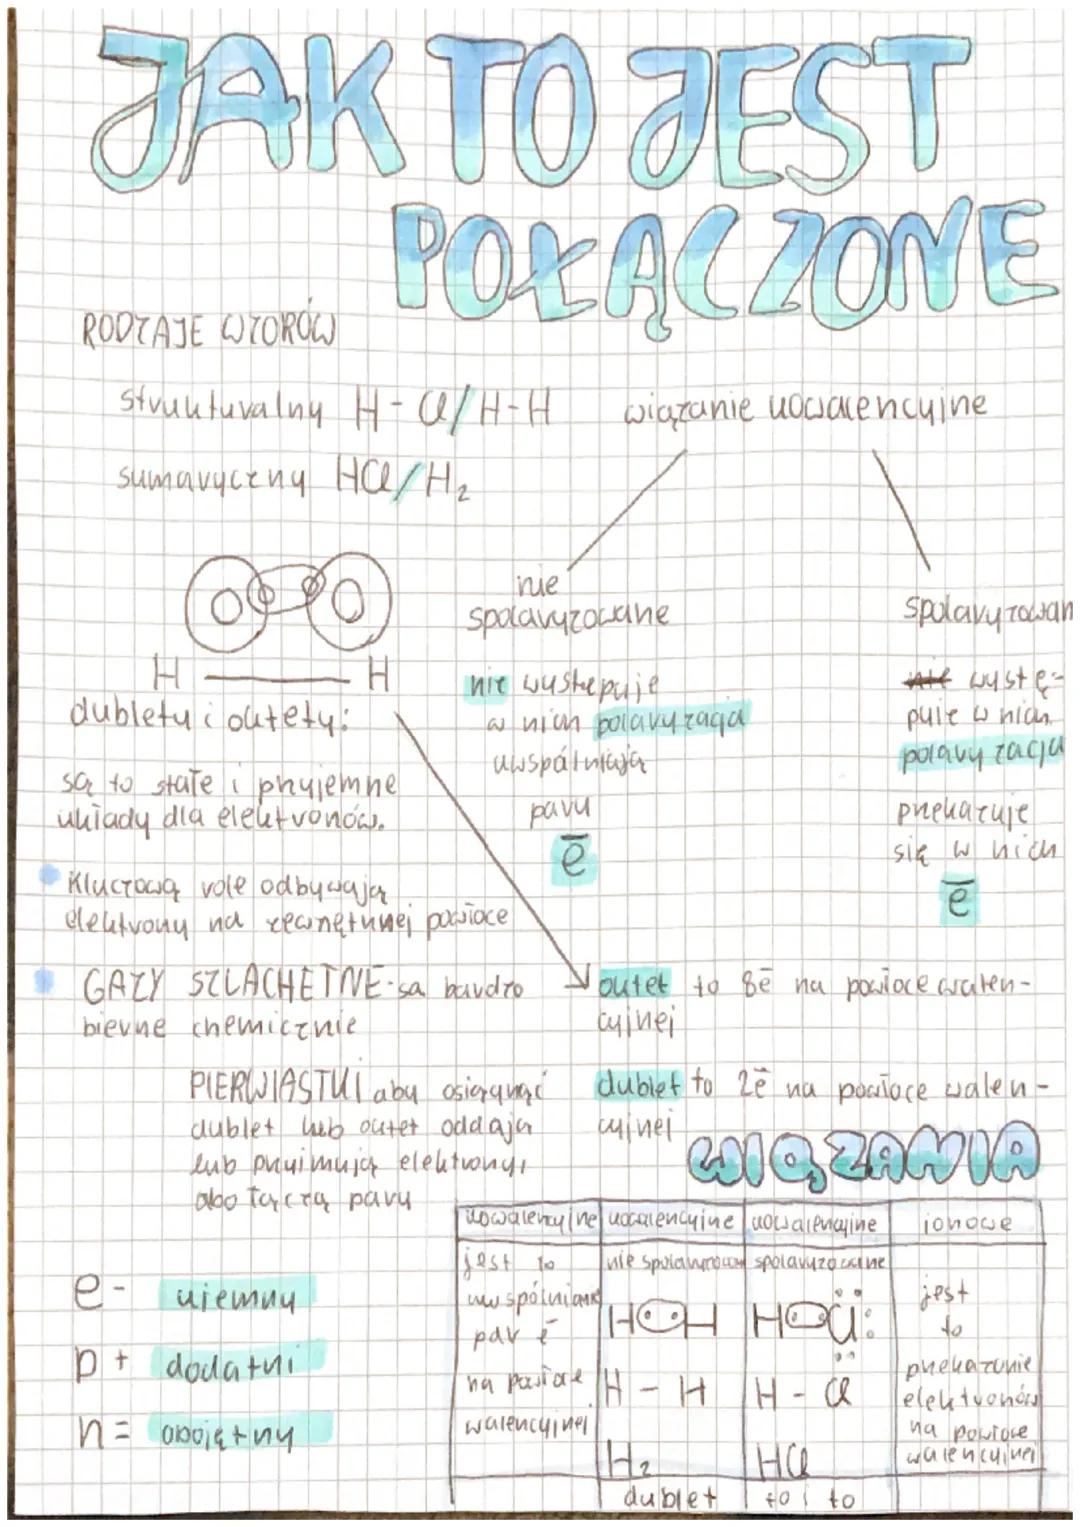 JAK TO JEST
POŁĄCZONE
RODZAJE WZORÓW
strukturalny H-Cl/H-H
sumaryczny HCl/H2
wiązanie kowalencyjne
nie
spolaryzowane
nie występuje
w nich polaryzacja
uwspólniają
pary
e̅
spolaryzowan
nie wystę-
puje w nich
polaryzacja
przekazuje
się w nich
e̅
H — H
dublety i oktety:
są to stałe i przyjemne
układy dla elektronów.
Kluczową role odbywają
elektrony na zewnętrznej powłoce
GAZY SZLACHETNE-są bardzo
bierne chemicznie
oktet to 8e̅ na powłoce walen-
cyjnej
dublet to 2e̅ na powłoce walen-
cyjnej
PIERWIASTKI aby osiągnąć
dublet lub oktet oddają
lub przyjmują elektrony,
albo łączą pary
WIĄZANIA
kowalencyjne kowalencyjne kowalencyjne jonowe
jest to
uwspólnianie
par e̅
na powłoce
walencyjnej
nie spolaryzowan
H H
H - H
H2
dublet
spolaryzowane
H Cl
H - Cl
HCl
to i to
jest
to
przekazanie
elektronów
na powłoce
walencyjnej
e- ujemny
p+ dodatni
n= obojętny